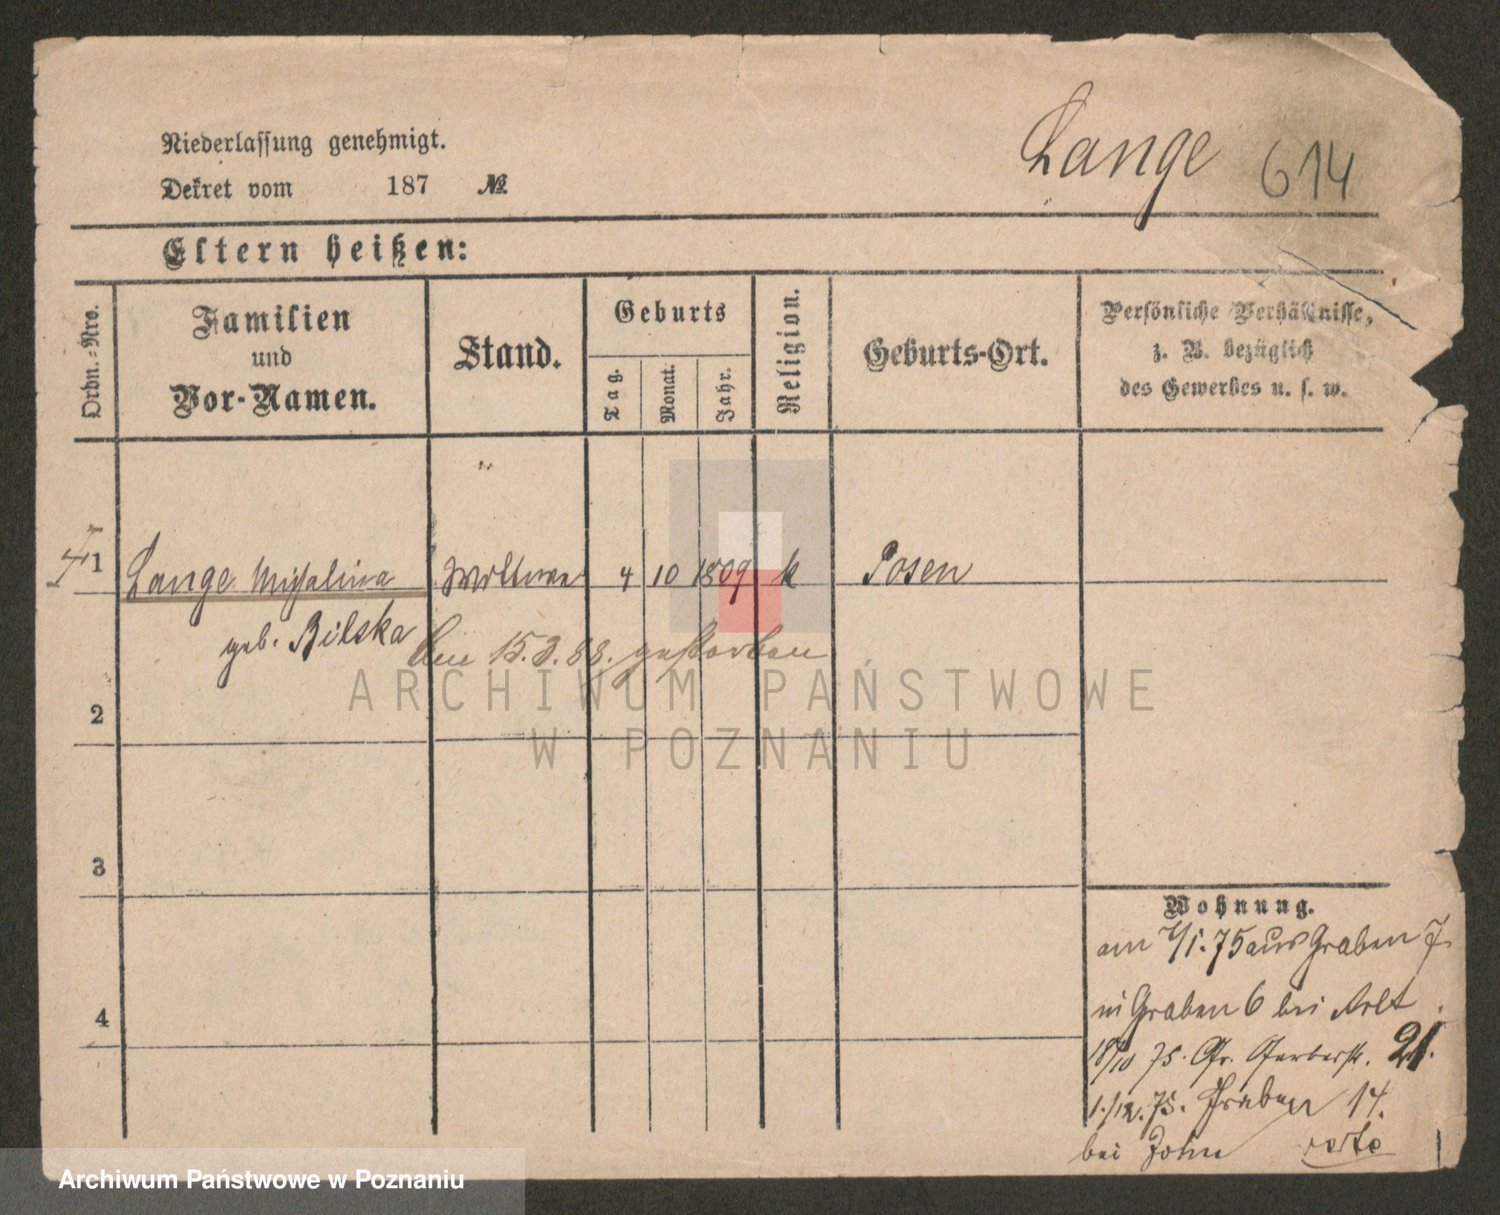 Lange 614
Niederlassung genehmigt.
Dekret vom 187 №
Eltern heißen:
Ordn.=Nro.
Familien
und
Vor-Namen.
Stand.
Geburts
Tag.
Monat.
Jahr.
Religion.
Geburts-Ort.
Persönliche Verhältnisse,
z. B. bezüglich
des Gewerbes u. s. w.
1 Lange Michalina Wittwe 4 10 1809 k Posen
geb. Bilska
den 15.3.88. gestorben
2
3
4
Wohnung.
am 7/1.75 aus Graben 7
in Graben 6 bei Arlt
18/10 75. Gr. Gerberstr. 21.
1./12.75. Graben 14.
bei John
ARCHIWUM PAŃSTWOWE
W POZNANIU
Archiwum Państwowe w Poznaniu